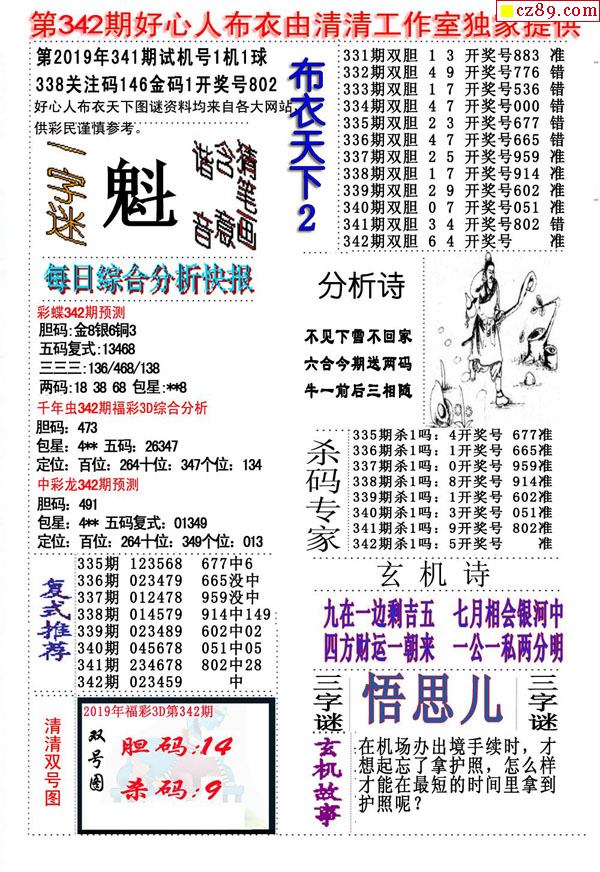 cz89.com
第342期好心人布衣由清清工作室独家提供
第2019年341期试机号1机1球
338关注码146金码1开奖号802
好心人布衣天下图谜资料均来自各大网站,
供彩民谨慎参考。
一字迷
魁
谐音
含意
猜笔画
布衣天下2
331期双胆 1 3 开奖号883 准
332期双胆 4 9 开奖号776 错
333期双胆 1 7 开奖号536 错
334期双胆 4 7 开奖号000 错
335期双胆 2 3 开奖号677 错
336期双胆 4 7 开奖号665 错
337期双胆 2 5 开奖号959 准
338期双胆 1 7 开奖号914 准
339期双胆 2 9 开奖号602 准
340期双胆 0 7 开奖号051 准
341期双胆 3 4 开奖号802 错
342期双胆 6 4 开奖号 准
每日综合分析快报
彩蝶342期预测
胆码:金8银6铜3
五码复式:13468
三三三:136/468/138
两码:18 38 68 包星:**8
千年虫342期福彩3D综合分析
胆码: 473
包星: 4** 五码: 26347
定位: 百位: 264十位: 347个位: 134
中彩龙342期预测
胆码: 491
包星: 4** 五码复式: 01349
定位: 百位: 264十位: 349个位: 013
分析诗
不见下雪不回家
六合今期送两码
牛一前后三相随
杀码专家
335期杀1吗: 4开奖号 677准
336期杀1吗: 1开奖号 665准
337期杀1吗: 0开奖号 959准
338期杀1吗: 8开奖号 914准
339期杀1吗: 1开奖号 602准
340期杀1吗: 3开奖号 051准
341期杀1吗: 9开奖号 802准
342期杀1吗: 5开奖号 准
复式推荐
335期 123568 677中6
336期 023479 665没中
337期 012478 959没中
338期 014579 914中149
339期 023489 602中02
340期 045678 051中05
341期 234678 802中28
342期 023459 中
玄机诗
九在一边剩吉五 七月相会银河中
四方财运一朝来 一公一私两分明
三字谜
悟思儿
三字谜
清清双号图
2019年福彩3D第342期
双号图
胆码:14
杀码:9
玄机故事
在机场办出境手续时，才
想起忘了拿护照，怎么样
才能在最短的时间里拿到
护照呢?